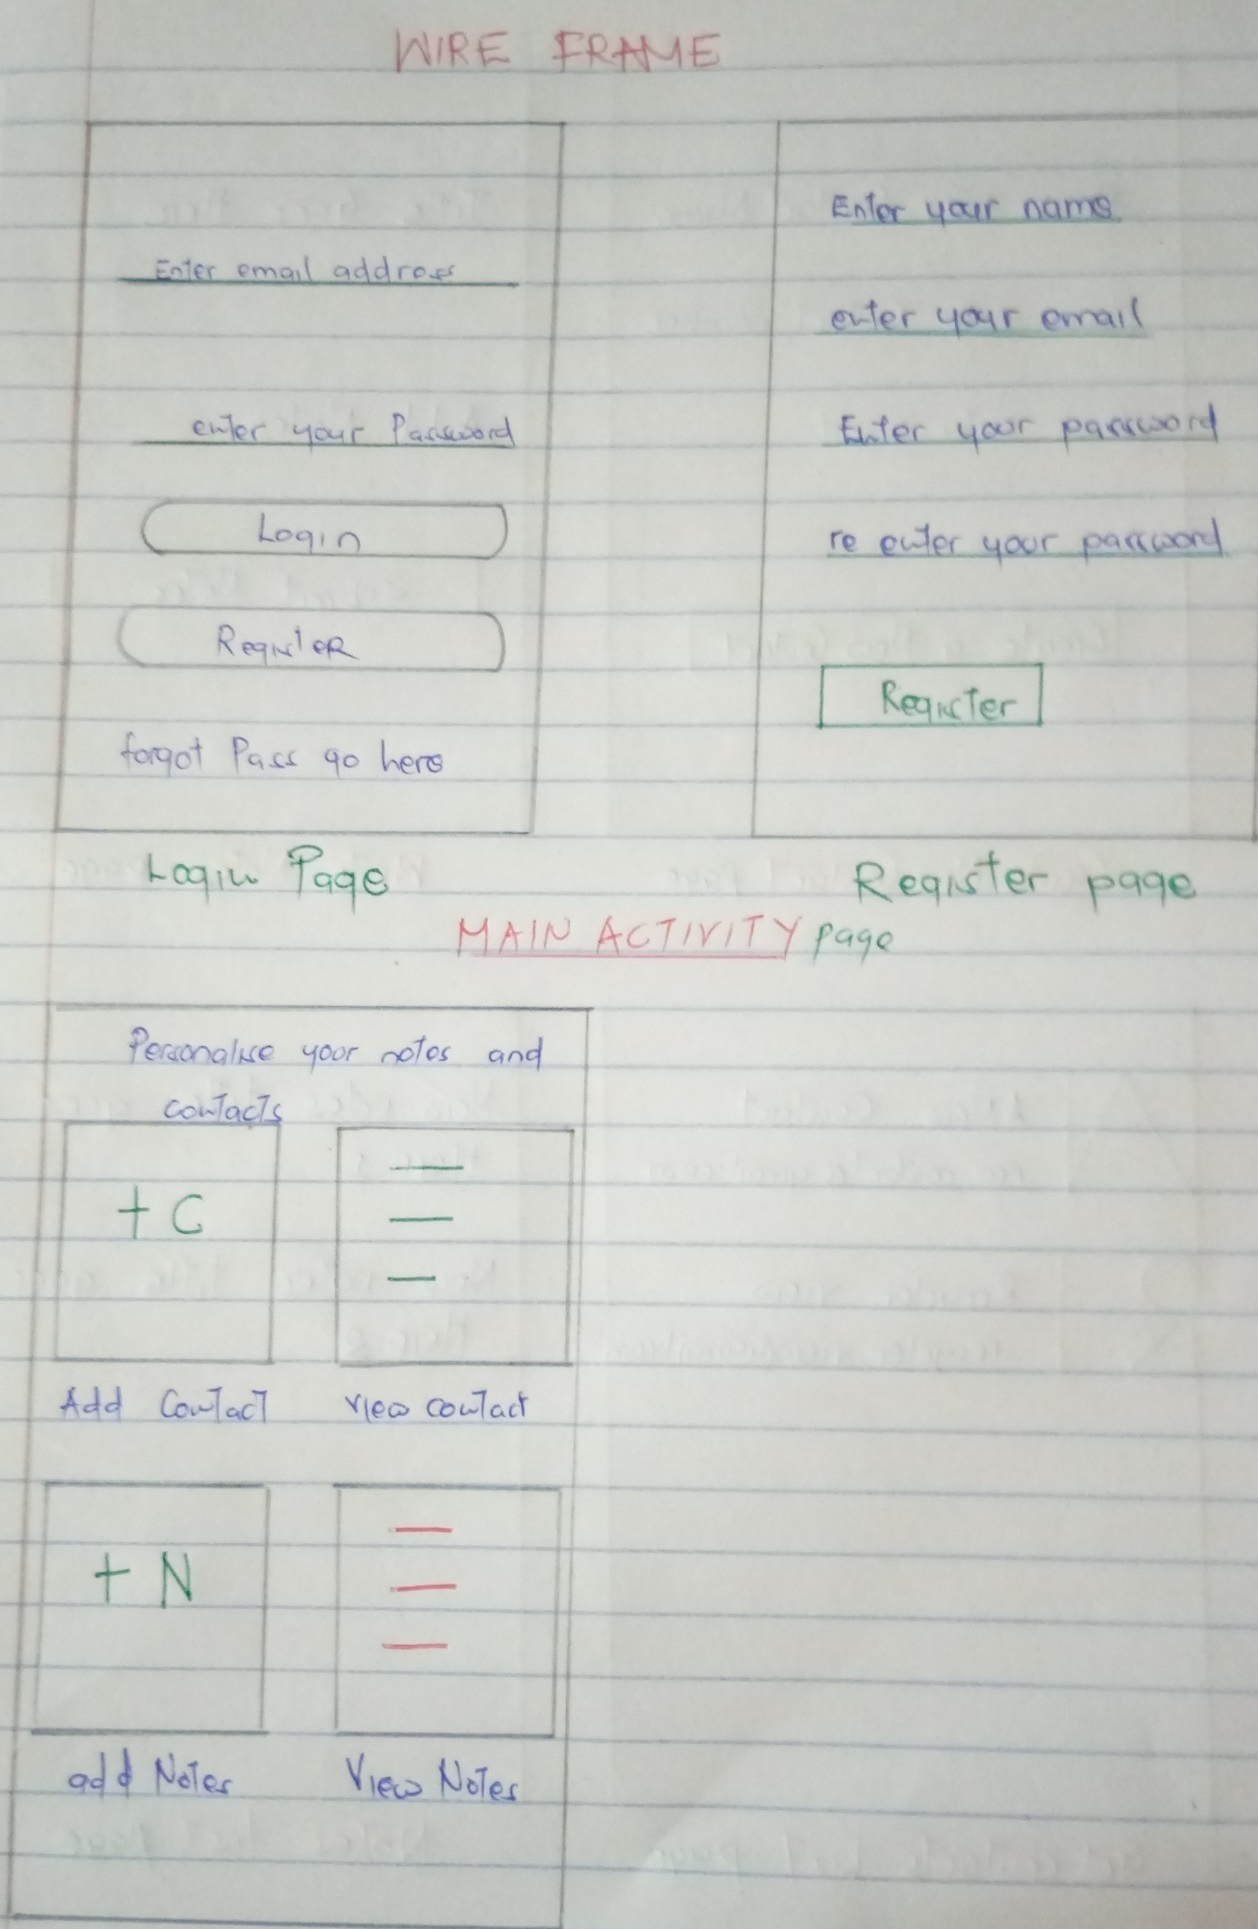 WIRE FRAME
Enter email address
enter your Password
Login
RegisteR
forgot Pass go here
Login Page
Enter your name
enter your email
Enter your password
re enter your password
Register
Register page
MAIN ACTIVITY page
Personalise your notes and
contacts
+ C
Add Contact
view contact
+ N
add Notes
View Notes